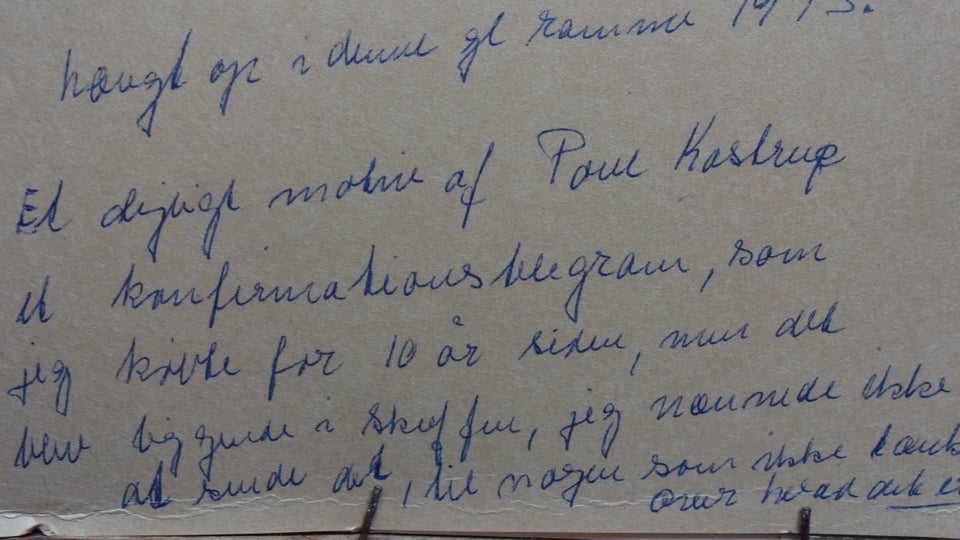 hængt op i denne gl ramme 1973.
Et dejligt motiv af Poul Kastrup
et konfirmationstelegram, som
jeg købte for 10 år siden, men det
blev liggende i skuffen, jeg nænnede ikke
at sende det, til nogen som ikke tænkt
over hvad det er